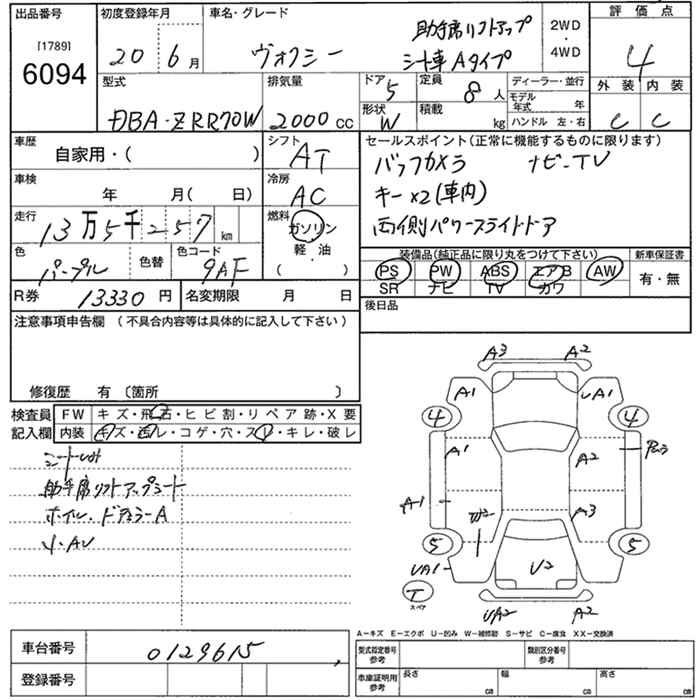 出品番号 初度登録年月 車名・グレード 評価点
[1789]
6094
20 6月 ヴォクシー
助手席リフトアップ
シート車 Aタイプ
2WD
・
4WD
4
型式 排気量 ドア 定員 ディーラー・並行 外装 内装
DBA-ZRR70W 2000cc 5 8人
モデル年式 年
形状 積載 ハンドル 左・右
W kg
C C
車歴 シフト セールスポイント(正常に機能するものに限ります)
自家用・( ) AT
バックカメラ ナビ-TV
車検 冷房
年 月( 日) AC
キー×2(車内)
走行 燃料
13万5千257km ガソリン
両側パワースライドドア
軽・油
( )
色 色替 色コード
パープル 9AF
装備品(純正品に限り丸をつけて下さい) 新車保証書
PS PW ABS エアB AW 有・無
SR ナビ TV カワ
R券 13330円 名変期限 月 日
後日品
注意事項申告欄 (不具合内容等は具体的に記入して下さい)
修復歴 有〔箇所 〕
検査員 FW キズ・飛石・ヒビ割・リペア跡・X要
記入欄 内装 キズ・西レ・コゲ・穴・スレ・キレ・破レ
助手席リフトアップシート
ホイル・ドアミラーA
小・AU
A3 A2
A1 UA1
4 4
A1 A2
A1
A3
W2
5 5
UA1 U2
T
スペア
UA2 A2
A-キズ E-エクボ U-凹み W-補修跡 S-サビ C-腐食 XX-交換済
車台番号 0129615
登録番号
型式指定番号 参考 類別区分番号 参考
車庫証明用 参考 長さ cm 幅 cm 高さ cm